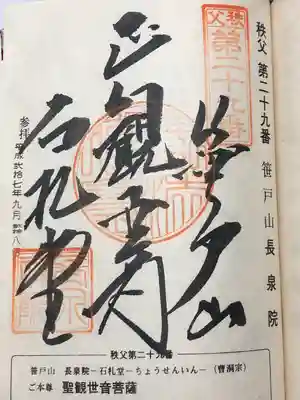 秩父 第二十九番 笹戸山長泉院
秩父
第二十九番
笹戸山
正観世音
石札堂
参拝 平成弐拾七年九月
八
秩父第二十九番
笹戸山 長泉院-石札堂-ちょうせんいん-(曹洞宗)
ご本尊 聖観世音菩薩